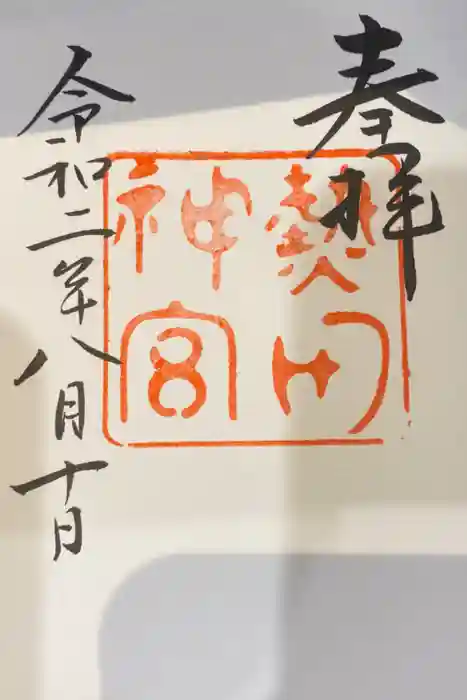 奉拝
熱田
神宮
令和二年八月十日